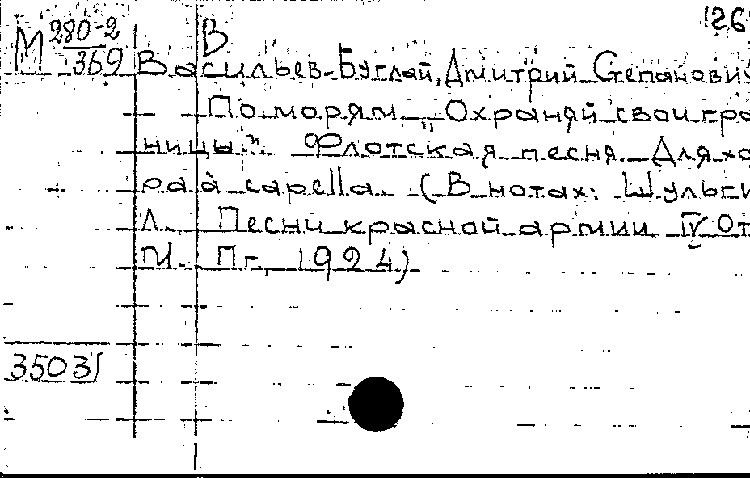 М 280-2 В 126
369 Васильев-Буглай, Дмитрий Степанович
По морям. „Охраняй свои гра
ницы". Флотская песня. Для хо
ра à capella. (В нотах: Шульги
Л. Песни красной армии IV От
М. Пг., 1924)
35031